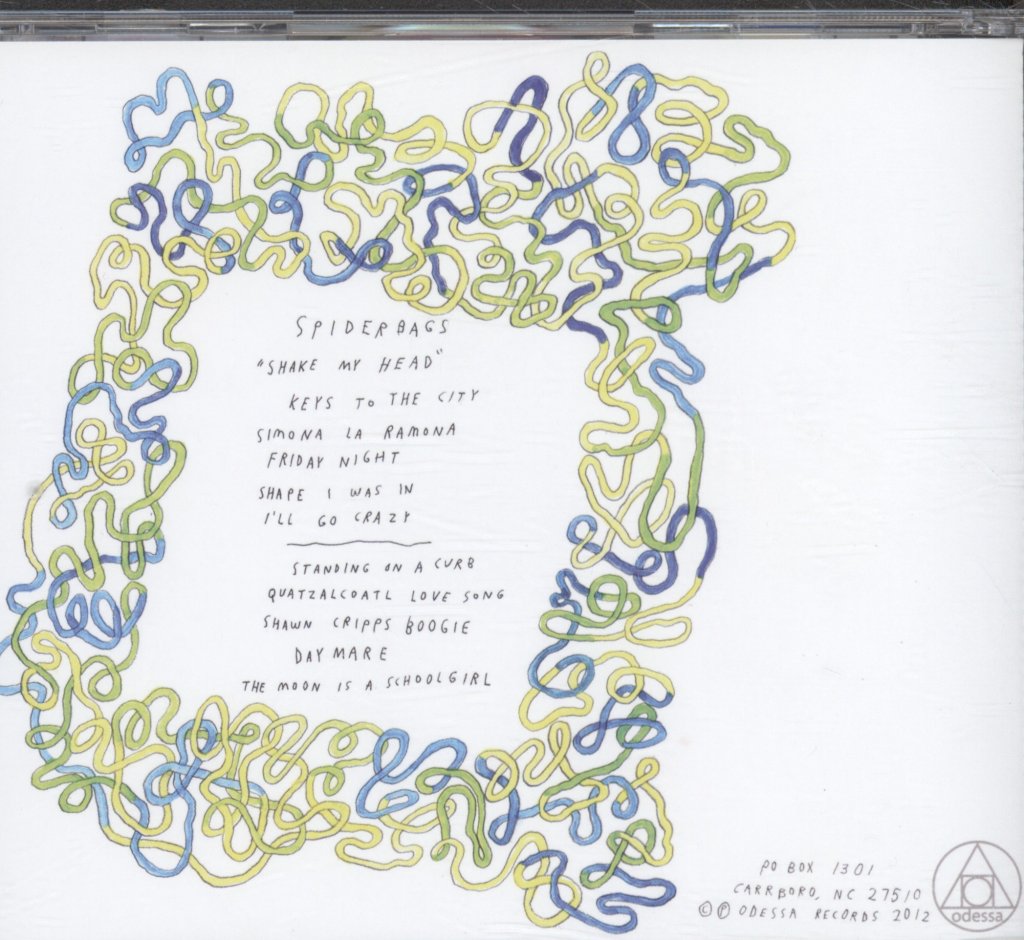 SPIDERBAGS
"SHAKE MY HEAD"
KEYS TO THE CITY
SIMONA LA RAMONA
FRIDAY NIGHT
SHAPE I WAS IN
I'LL GO CRAZY
STANDING ON A CURB
QUATZALCOATL LOVE SONG
SHAWN CRIPPS BOOGIE
DAYMARE
THE MOON IS A SCHOOLGIRL
PO BOX 1301
CARRBORO, NC 27510
© ℗ ODESSA RECORDS 2012
odessa